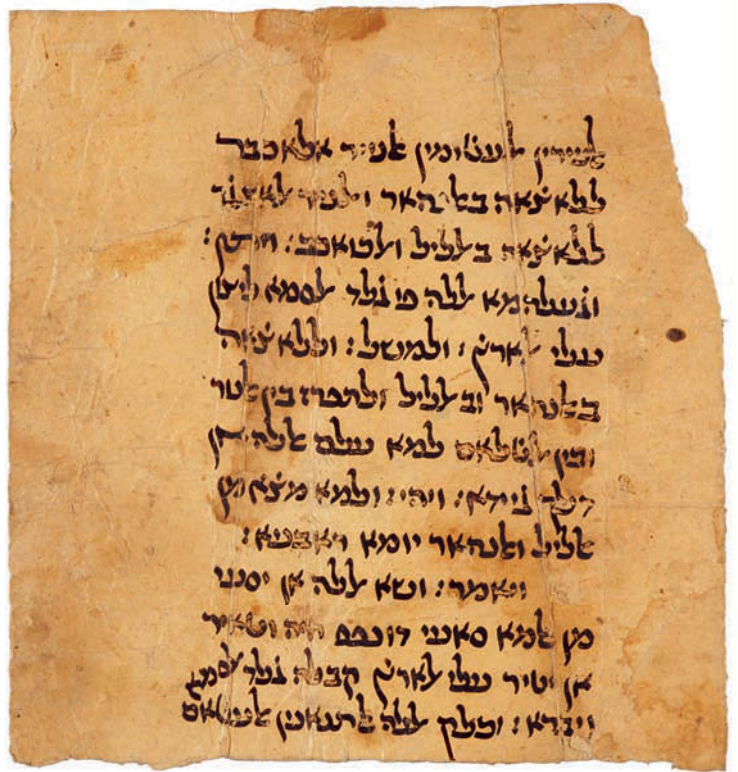 אלנירין אלעטׄימין אלניר אלאכבר
ללאצׄאה באלנהאר ואלניר אלאצגׄר
ללאצׄאה באלליל ואלכואכב: ויתן:
וגׄעלהמא אללה פי גׄלד אלסמא ליצׄין
עלי אלארץׄ: ולמשל: וללאצׄאה
באלנהאר ובאלליל ולתפרז בין אלנור
ובין אלטׄלאם פלמא עלם אללה אן
דלך גׄיידא: ויהי: ולמא מצׄא מן
אלליל ואלנהאר יומא ראבעא:
ויאמר: ושא אללה אן יסעי
מן אלמא סאעי דו נפס חיה וטאיר
אן יטיר עלי אלארץׄ קבאלה גׄלד אלסמא
ויברא: וכׄלק אללה אלתנאנין אלעטׄאם